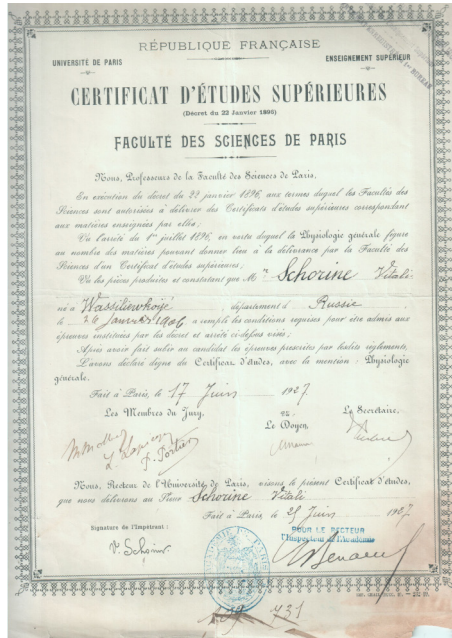 RÉPUBLIQUE FRANÇAISE
UNIVERSITÉ DE PARIS
ENSEIGNEMENT SUPÉRIEUR
CERTIFICAT D'ÉTUDES SUPÉRIEURES
(Décret du 22 Janvier 1896)
FACULTÉ DES SCIENCES DE PARIS
Nous, Professeurs de la Faculté des Sciences de Paris,
En exécution du décret du 22 janvier 1896, aux termes duquel les Facultés des
Sciences sont autorisées à délivrer des Certificats d'études supérieures correspondant
aux matières enseignées par elles;
Vu l'arrêté du 1er juillet 1896, en vertu duquel la Physiologie générale figure
au nombre des matières pouvant donner lieu à la délivrance par la Faculté des
Sciences d'un Certificat d'études supérieures;
Vu les pièces produites et constatant que M r Schorine Vitali
né à Wassiliewkoïé département d Russie
le 26 Janvier 1906 a rempli les conditions requises pour être admis aux
épreuves instituées par les décret et arrêté ci-dessus visés;
Après avoir fait subir au candidat les épreuves prescrites par lesdits règlements,
L'avons déclaré digne du Certificat d'études, avec la mention : Physiologie
générale.
Fait à Paris, le 17 Juin 1927
Les Membres du Jury,
Le Doyen,
Le Secrétaire,
P. Portier
Nous, Recteur de l'Université de Paris, visons le présent Certificat d'études,
que nous délivrons au Sieur Schorine Vitali
Fait à Paris, le 25 Juin 1927
Signature de l'Impétrant :
POUR LE RECTEUR
l'Inspecteur de l'Académie
V. Schorine
731